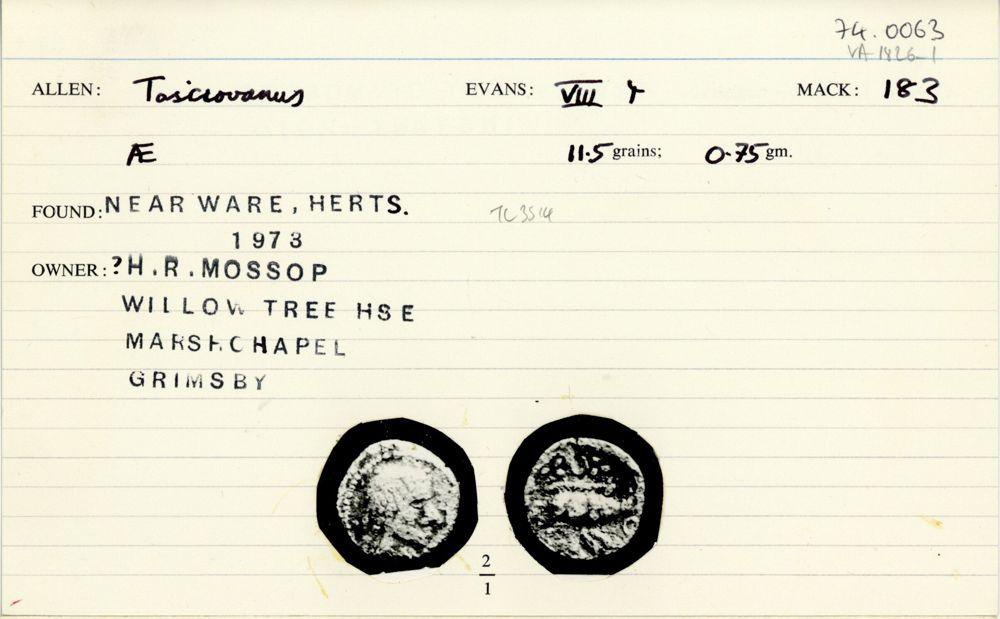 74.0063
VA 1826-1
ALLEN: Tasciovanus EVANS: VIII MACK: 183
Æ 11.5 grains; 0.75 gm.
FOUND: NEAR WARE, HERTS. TL3514
1973
OWNER: ?H.R.MOSSOP
WILLOW TREE HSE
MARSHCHAPEL
GRIMSBY
2
1